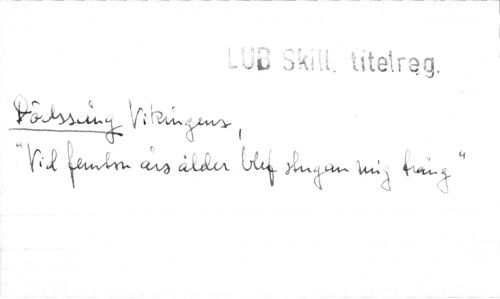 LUB Skill. titelreg.
Dödssång Vikingens,
"Vid femton års ålder blef stugan mig trång"